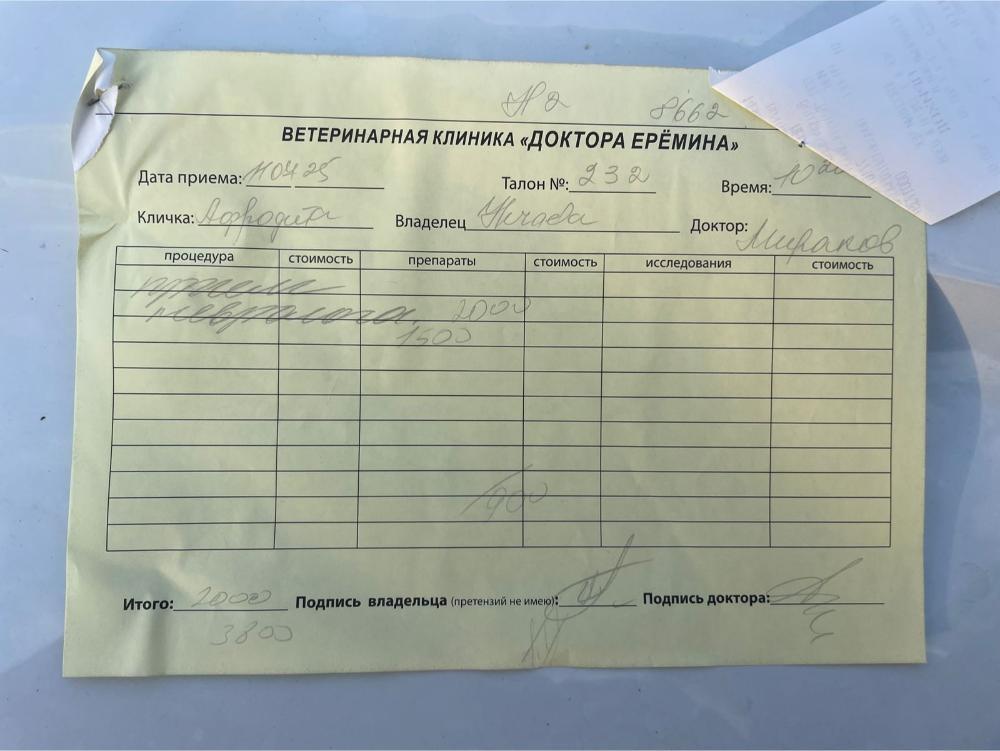 №2 8662
ВЕТЕРИНАРНАЯ КЛИНИКА «ДОКТОРА ЕРЁМИНА»
Дата приема: 110425 Талон №: 232 Время: 10
Кличка: Афродита Владелец Доктор: Мираков
процедура стоимость препараты стоимость исследования стоимость
невролога 2000
1500
900
Итого: 2000 Подпись владельца (претензий не имею): Подпись доктора:
3800